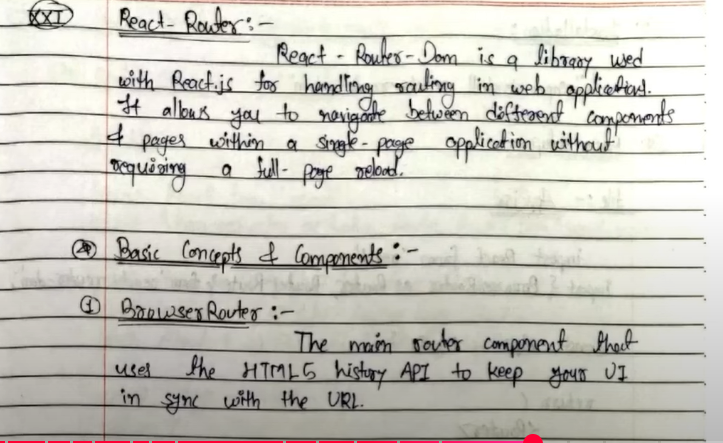 XXI React-Router:-
React-Router-Dom is a library used
with React.js for handling routing in web applications.
It allows you to navigate between different components
& pages within a single-page application without
requiring a full-page reload.
Basic Concepts & Components:-
① BrowserRouter:-
The main router component that
uses the HTML5 history API to keep your UI
in sync with the URL.